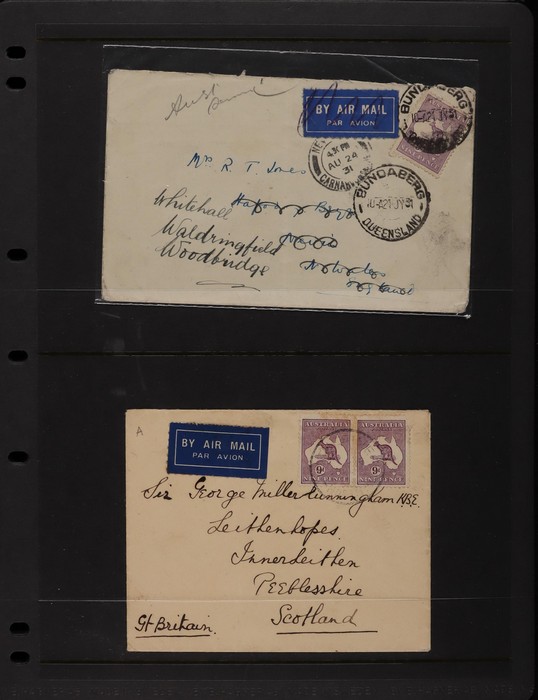 BY AIR MAIL
PAR AVION
BUNDABERG
NINE PENCE
4.30 PM
AU 24
31
CARNARVON
BUNDABERG
10-A 21 JY 31
QUEENSLAND
Mrs R. T. Jones
Whitehall
Waldringfield
Woodbridge
A
BY AIR MAIL
PAR AVION
AUSTRALIA AUSTRALIA
9D 9D
NINE PENCE NINE PENCE
Sir George Miller Cunningham K.B.E.
Leithenhopes.
Innerleithen
Peeblesshire
Scotland
Gt Britain.